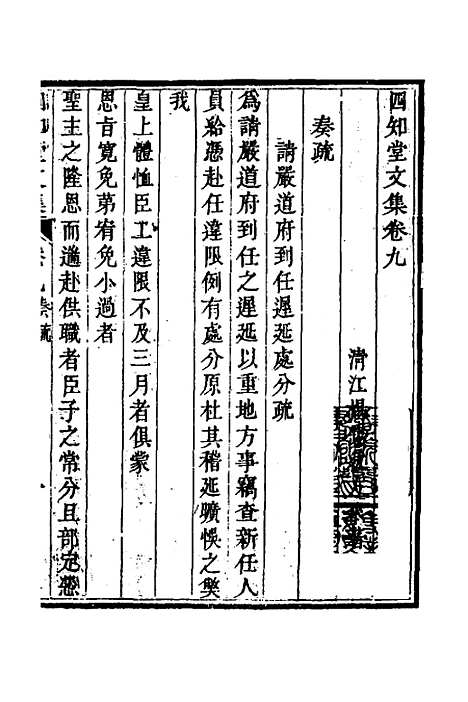 四知堂文集卷九
清江楊
奏疏
請嚴道府到任遲延處分疏
爲請嚴道府到任之遲延以重地方事竊查新任人
員給憑赴任違限例有處分原杜其稽延曠悞之獘
我
皇上體恤臣工違限不及三月者俱蒙
恩旨寬免苐宥免小過者
聖主之隆恩而遄赴供職者臣子之常分且部定憑
卷九奏疏